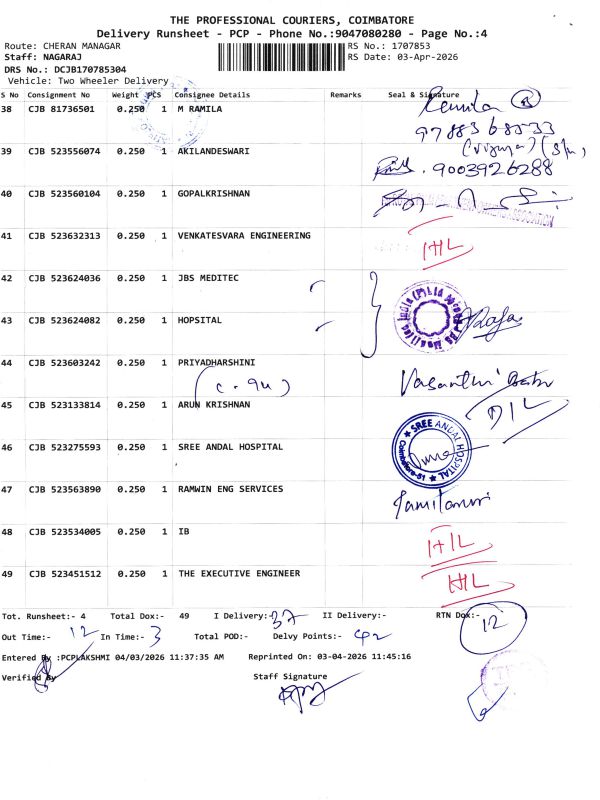 THE PROFESSIONAL COURIERS, COIMBATORE
Delivery Runsheet - PCP - Phone No.:9047080280 - Page No.:4
Route: CHERAN MANAGAR
RS No.: 1707853
Staff: NAGARAJ
RS Date: 03-Apr-2026
DRS No.: DCJB170785304
Vehicle: Two Wheeler Delivery
S No Consignment No Weight PCS Consignee Details Remarks Seal & Signature
38 CJB 81736501 0.250 1 M RAMILA
39 CJB 523556074 0.250 1 AKILANDESWARI
9003926288
40 CJB 523560104 0.250 1 GOPALKRISHNAN
ASSOCIATION
41 CJB 523632313 0.250 1 VENKATESVARA ENGINEERING
42 CJB 523624036 0.250 1 JBS MEDITEC
43 CJB 523624082 0.250 1 HOPSITAL
44 CJB 523603242 0.250 1 PRIYADHARSHINI
Vasanthi
45 CJB 523133814 0.250 1 ARUN KRISHNAN
DIL
46 CJB 523275593 0.250 1 SREE ANDAL HOSPITAL
SREE ANDAL HOSPITAL
47 CJB 523563890 0.250 1 RAMWIN ENG SERVICES
48 CJB 523534005 0.250 1 IB
49 CJB 523451512 0.250 1 THE EXECUTIVE ENGINEER
Tot. Runsheet:- 4 Total Dox:- 49 I Delivery:- 37 II Delivery:- RTN Dox:- 12
Out Time:- 12 In Time:- 3 Total POD:- Delvy Points:- 42
Entered By :PCPLAKSHMI 04/03/2026 11:37:35 AM Reprinted On: 03-04-2026 11:45:16
Verified By
Staff Signature